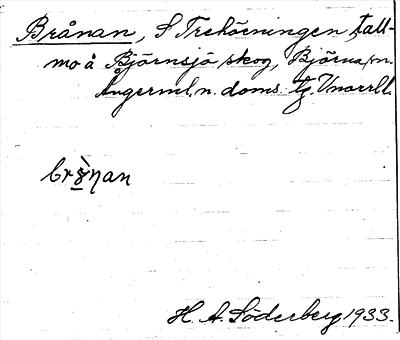 Brånan, S Trehörningen, tall-
mo å Björnsjö skog, Björna sn.
Ångerml. n. doms. tg. Vnorrl l.
H. A. Söderberg 1933.